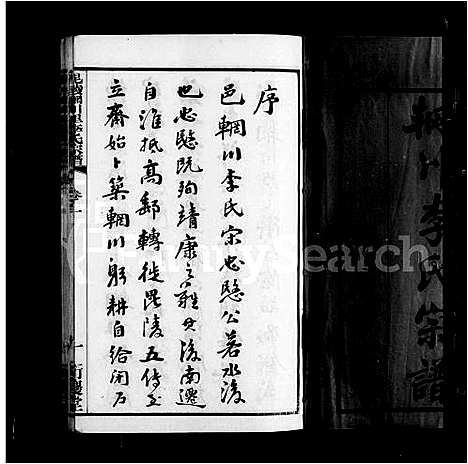 序
邑輞川李氏宗忠愍公若水後
也忠愍既殉靖康之難其後南遷
自淮抵高郵轉徙毘陵五傳至
立齋始卜築輞川躬耕自給閉户
輞川里李氏宗譜
卷之一
一
輞川李氏宗譜
FamilySearch